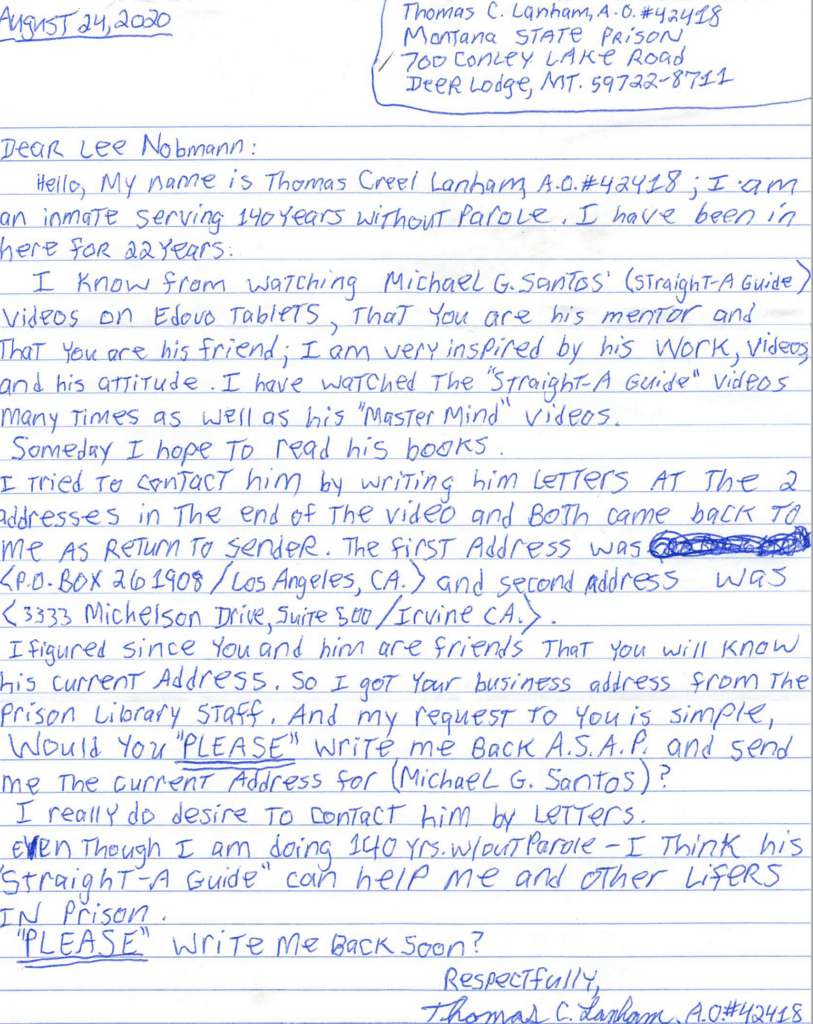 August 24, 2020
Thomas C. Lanham, A.O. #42418
Montana STATE Prison
700 Conley Lake Road
Deer Lodge, MT. 59722-8711
Dear Lee Nobmann:
Hello, My name is Thomas Creel Lanham, A.O.#42418; I am
an inmate serving 140 years without Parole. I have been in
here for 22 years.
I know from watching Michael G. Santos' (Straight-A Guide)
videos on Edovo Tablets, that you are his mentor and
that you are his friend; I am very inspired by his work, videos,
and his attitude. I have watched the "Straight-A Guide" videos
many times as well as his "Master Mind" videos.
Someday I hope to read his books.
I tried to contact him by writing him letters at the 2
addresses in the end of the video and both came back to
me as Return to Sender. The first Address was
<P.O. BOX 261908/Los Angeles, CA.> and second address was
<3333 Michelson Drive, Suite 500/Irvine CA.>.
I figured since you and him are friends that you will know
his current Address. So I got your business address from the
Prison Library Staff. And my request to you is simple,
Would you "PLEASE" write me back A.S.A.P. and send
me the current Address for (Michael G. Santos)?
I really do desire to contact him by letters.
Even though I am doing 140 yrs. w/out Parole - I think his
"Straight-A Guide" can help me and other Lifers
IN Prison.
"PLEASE" write me back soon?
Respectfully,
Thomas C. Lanham, A.O#42418